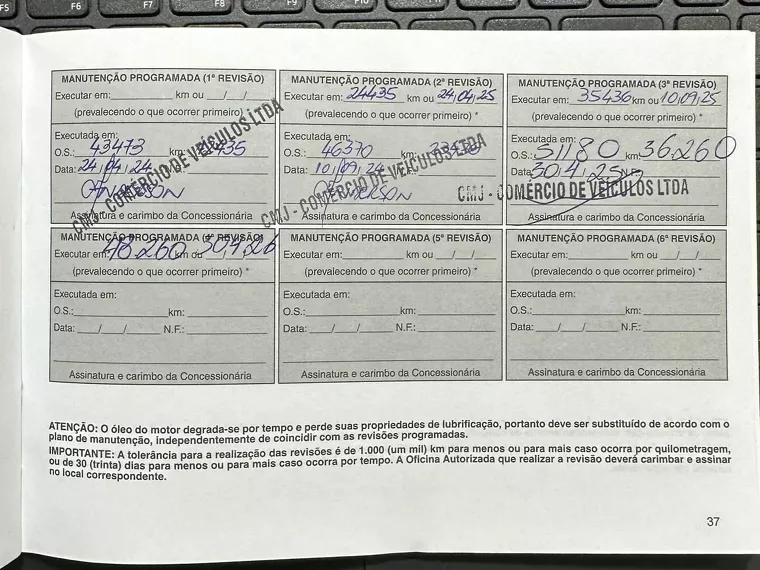 F5 F6 F7 F8 F9 F10 F11 F12
MANUTENÇÃO PROGRAMADA (1ª REVISÃO)
Executar em: km ou / /
(prevalecendo o que ocorrer primeiro) *
Executada em:
O.S.: 43473 km: 435
Data: 24/04/24
ANDERSON
CMJ - COMÉRCIO DE VEÍCULOS LTDA
Assinatura e carimbo da Concessionária
MANUTENÇÃO PROGRAMADA (2ª REVISÃO)
Executar em: 24435 km ou 24/04/25
(prevalecendo o que ocorrer primeiro) *
Executada em:
O.S.: 46370 km:
Data: 10/09/24
CMJ - COMÉRCIO DE VEÍCULOS LTDA
Assinatura e carimbo da Concessionária
MANUTENÇÃO PROGRAMADA (3ª REVISÃO)
Executar em: 35436 km ou 10/09/25
(prevalecendo o que ocorrer primeiro) *
Executada em:
O.S.: 51180 km: 36.260
Data: 30/4/25 N.F.:
CMJ - COMÉRCIO DE VEÍCULOS LTDA
Assinatura e carimbo da Concessionária
MANUTENÇÃO PROGRAMADA (4ª REVISÃO)
Executar em: 48.260 km ou 30/4/26
(prevalecendo o que ocorrer primeiro) *
Executada em:
O.S.: km:
Data: / / N.F.:
Assinatura e carimbo da Concessionária
MANUTENÇÃO PROGRAMADA (5ª REVISÃO)
Executar em: km ou / /
(prevalecendo o que ocorrer primeiro) *
Executada em:
O.S.: km:
Data: / / N.F.:
Assinatura e carimbo da Concessionária
MANUTENÇÃO PROGRAMADA (6ª REVISÃO)
Executar em: km ou / /
(prevalecendo o que ocorrer primeiro) *
Executada em:
O.S.: km:
Data: / / N.F.:
Assinatura e carimbo da Concessionária
ATENÇÃO: O óleo do motor degrada-se por tempo e perde suas propriedades de lubrificação, portanto deve ser substituído de acordo com o
plano de manutenção, independentemente de coincidir com as revisões programadas.
IMPORTANTE: A tolerância para a realização das revisões é de 1.000 (um mil) km para menos ou para mais caso ocorra por quilometragem,
ou de 30 (trinta) dias para menos ou para mais caso ocorra por tempo. A Oficina Autorizada que realizar a revisão deverá carimbar e assinar
no local correspondente.
37